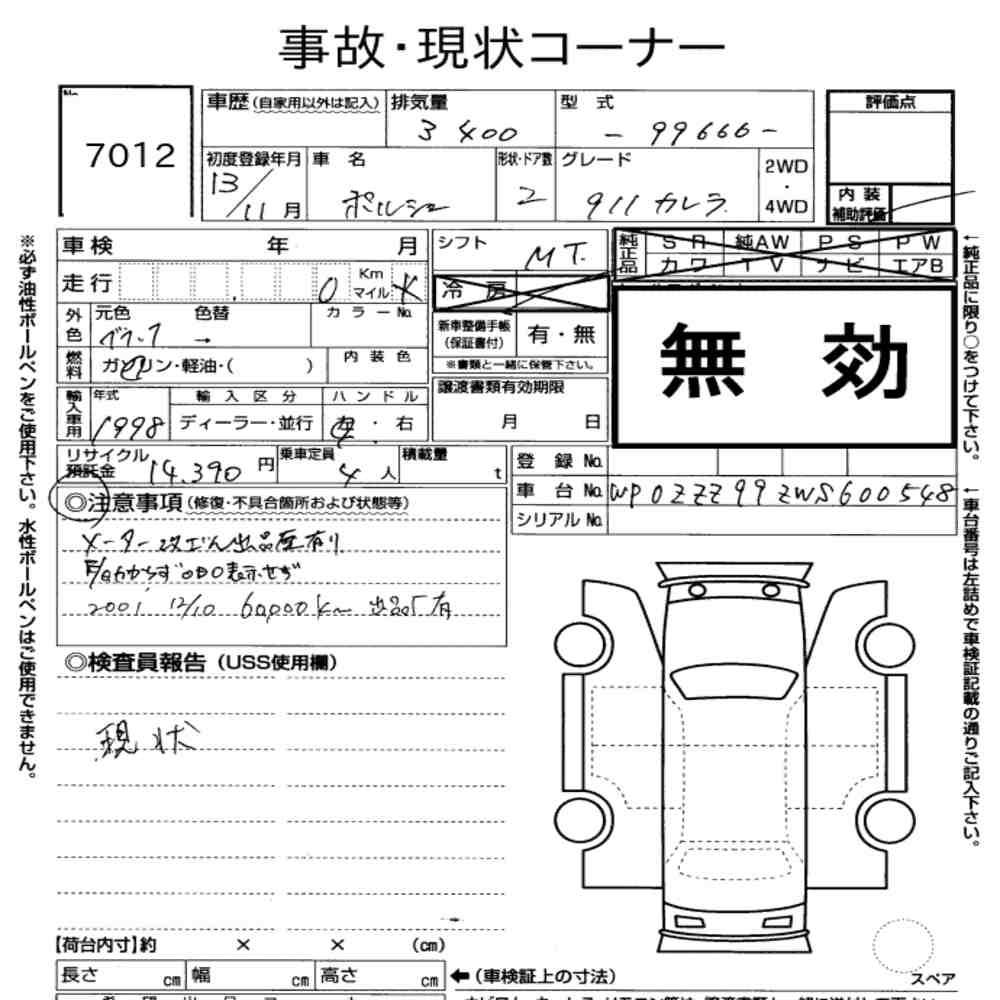 事故・現状コーナー
7012
車歴(自家用以外は記入)
排気量
3400
型 式
- 99666 -
評価点
初度登録年月
13/11月
車 名
ポルシェ
形状・ドア数
2
グレード
911カレラ
2WD
・
4WD
内 装
補助評価
車検 年 月
シフト
MT.
純正品
SR 純AW PS PW
カワ TV ナビ エアB
走行
0
Km
マイル
冷 房
外色
元色 色替
→
カラーNo.
新車整備手帳
(保証書付)
有・無
※書類と一緒に保管下さい。
燃料
ガソリン・軽油・( )
内 装 色
無 効
輸入車用
年式
1998
輸 入 区 分
ディーラー・並行
ハ ン ド ル
左・右
譲渡書類有効期限
月 日
リサイクル
預託金
14,390円
乗車定員
4人
積載量
t
登 録 No.
車 台 No. WP0ZZZ99ZWS600548
シリアル No.
◎注意事項(修復・不具合箇所および状態等)
メーター改ざん出品歴有り
2001. 12/10 60,000km 出品 有
◎検査員報告(USS使用欄)
現状
【荷台内寸】約 × × (cm)
長さ cm 幅 cm 高さ cm
←(車検証上の寸法)
スペア
※必ず油性ボールペンをご使用下さい。水性ボールペンはご使用できません。
←純正品に限り○をつけて下さい。
←車台番号は左詰めで車検証記載の通りご記入下さい。